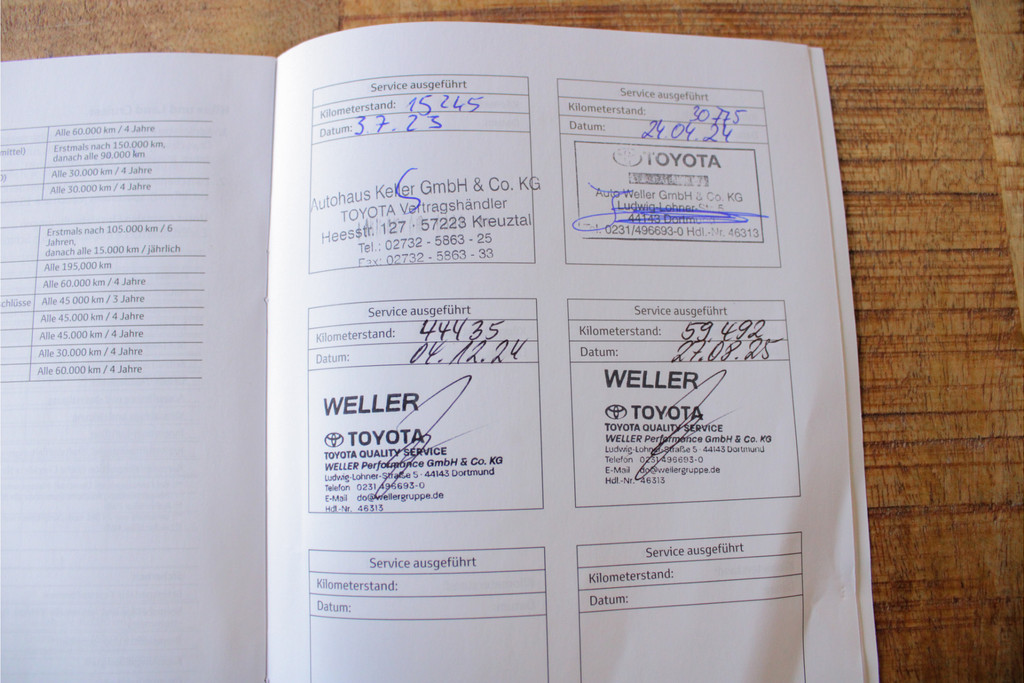 Alle 60.000 km / 4 Jahre
mittel) Erstmals nach 150.000 km,
danach alle 90.000 km
Alle 30.000 km / 4 Jahre
Alle 30.000 km / 4 Jahre
Erstmals nach 105.000 km / 6
Jahren,
danach alle 15.000 km / jährlich
Alle 195.000 km
Alle 60.000 km / 4 Jahre
schlüsse Alle 45 000 km / 3 Jahre
Alle 45.000 km / 4 Jahre
Alle 45.000 km / 4 Jahre
Alle 30.000 km / 4 Jahre
Alle 60.000 km / 4 Jahre
Service ausgeführt
Kilometerstand: 15245
Datum: 3.7.23
Autohaus Keller GmbH & Co. KG
TOYOTA Vertragshändler
Heesstr. 127 · 57223 Kreuztal
Tel.: 02732 - 5863 - 25
Fax: 02732 - 5863 - 33
Service ausgeführt
Kilometerstand: 30775
Datum: 24.04.24
TOYOTA
Auto Weller GmbH & Co. KG
Ludwig-Lohner-Str. 5
44143 Dortmund
Tel. 0231/496693-0 Hdl.-Nr. 46313
Service ausgeführt
Kilometerstand: 44435
Datum: 04.12.24
WELLER
TOYOTA
TOYOTA QUALITY SERVICE
WELLER Performance GmbH & Co. KG
Ludwig-Lohner-Straße 5 · 44143 Dortmund
Telefon 0231 496693-0
E-Mail do@wellergruppe.de
Hdl.-Nr. 46313
Service ausgeführt
Kilometerstand: 59.492
Datum: 27.08.25
WELLER
TOYOTA
TOYOTA QUALITY SERVICE
WELLER Performance GmbH & Co. KG
Ludwig-Lohner-Straße 5 · 44143 Dortmund
Telefon 0231 496693-0
E-Mail do@wellergruppe.de
Hdl.-Nr. 46313
Service ausgeführt
Kilometerstand:
Datum:
Service ausgeführt
Kilometerstand:
Datum: